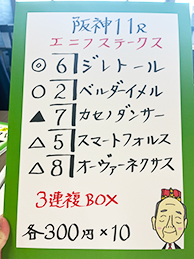 阪神11R
エニフステークス
◎ 6 ジレトール
○ 2 ベルダイメル
▲ 7 カセノダンサー
△ 5 スマートフォルス
△ 8 オーヴァーネクサス
3連複BOX
各300円×10